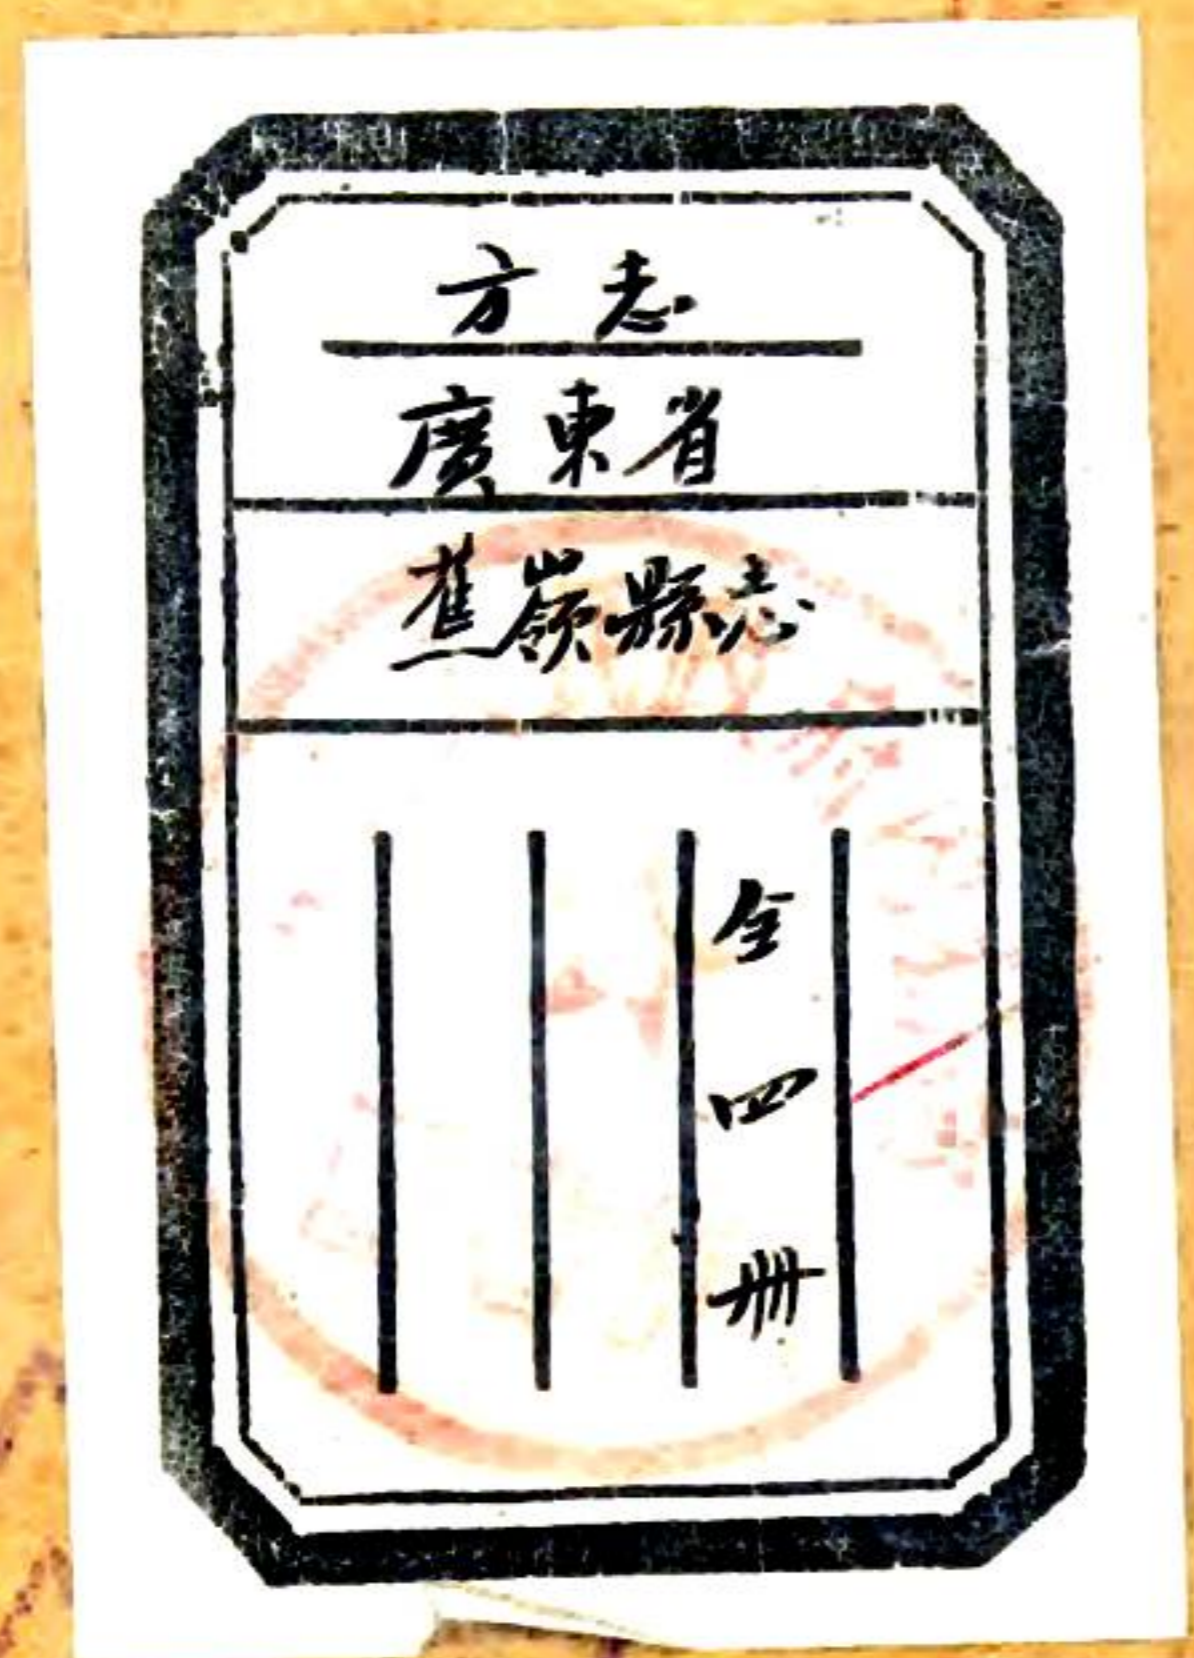 方志
廣東省
蕉嶺縣志
全四册